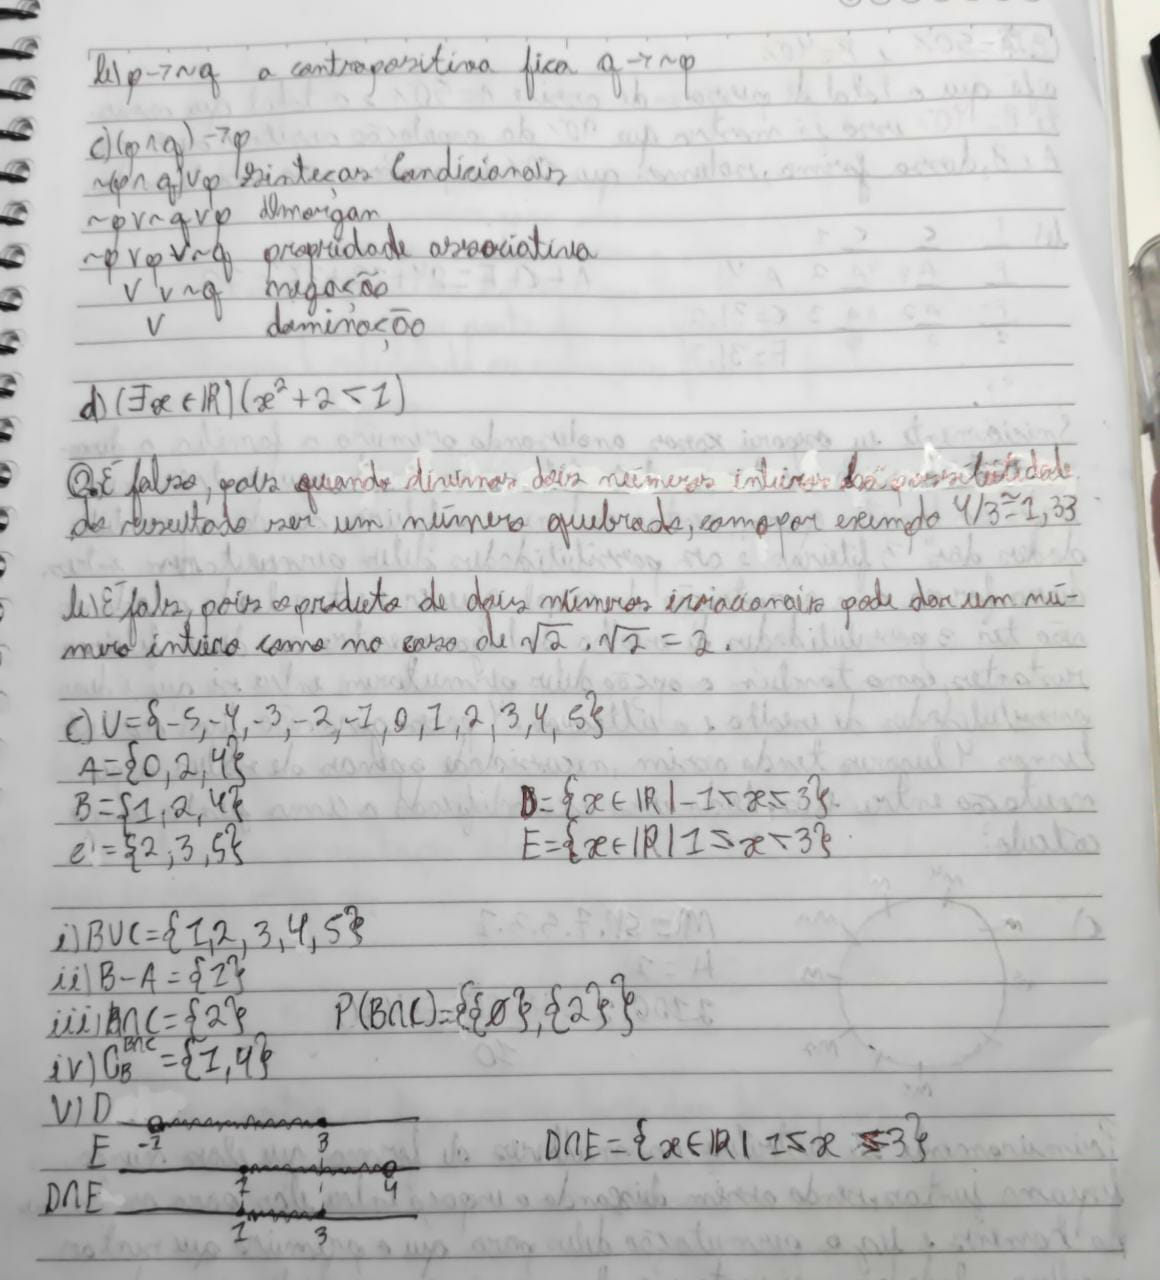 b) p→~q a contrapositiva fica q→~p
c) (p∧q)→p
~(p∧q)∨p Condicionais
~p∨~q∨p demorgan
~p∨p∨~q propriedade associativa
V∨~q negação
V dominação
d) (∃x∈ℝ)(x²+2<1)
2. É falso, pois quando dois números
do resultado ser um número quebrado, como por exemplo 4/3≅1,33
b) É falso, pois o produto de dois números irracionais pode dar um nú-
mero inteiro como no caso de √2.√2=2.
c) U={-5,-4,-3,-2,-1,0,1,2,3,4,5}
A={0,2,4}
B={1,2,4} D={x∈ℝ|-1<x≤3}
C={2,3,5} E={x∈ℝ|1≤x<3}
i) B∪C={1,2,3,4,5}
ii) B-A={1}
iii) B∩C={2} P(B∩C)={{∅},{2}}
iv) C_B^{B∩C}={1,4}
V) D
-1 3
E D∩E={x∈ℝ|1≤x≤3}
1 4
D∩E
1 3